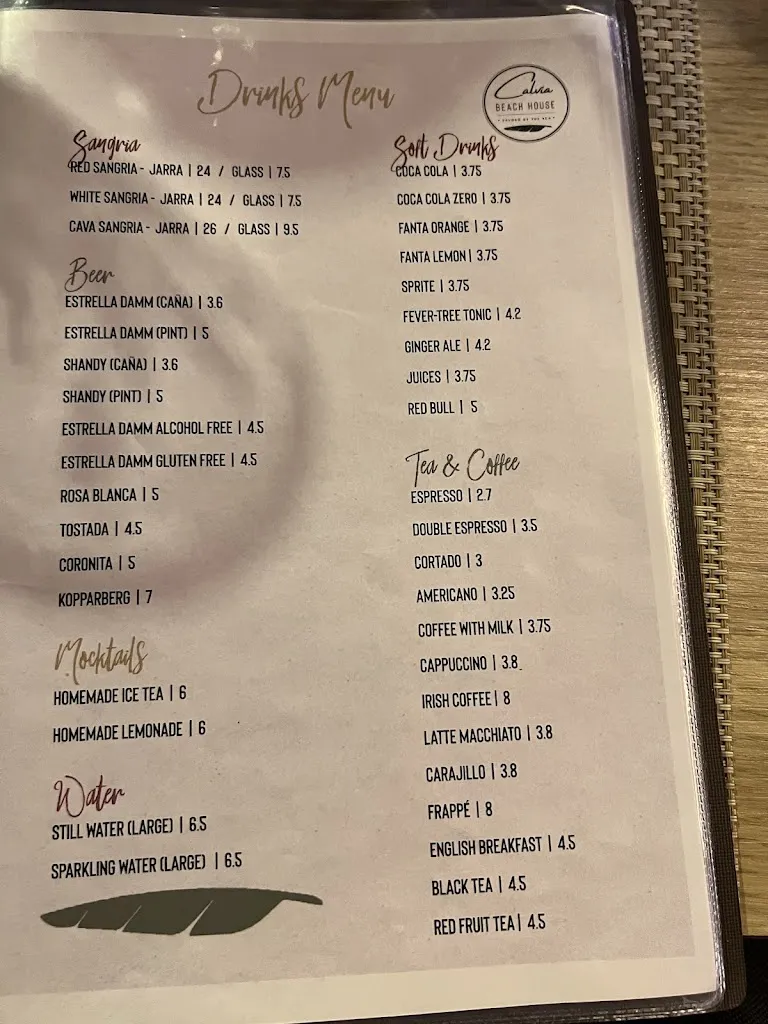 Drinks Menu
Calvia
BEACH HOUSE
Sangria
RED SANGRIA - JARRA | 24 / GLASS | 7.5
WHITE SANGRIA - JARRA | 24 / GLASS | 7.5
CAVA SANGRIA - JARRA | 26 / GLASS | 9.5
Beer
ESTRELLA DAMM (CAÑA) | 3.6
ESTRELLA DAMM (PINT) | 5
SHANDY (CAÑA) | 3.6
SHANDY (PINT) | 5
ESTRELLA DAMM ALCOHOL FREE | 4.5
ESTRELLA DAMM GLUTEN FREE | 4.5
ROSA BLANCA | 5
TOSTADA | 4.5
CORONITA | 5
KOPPARBERG | 7
Mocktails
HOMEMADE ICE TEA | 6
HOMEMADE LEMONADE | 6
Water
STILL WATER (LARGE) | 6.5
SPARKLING WATER (LARGE) | 6.5
Soft Drinks
COCA COLA | 3.75
COCA COLA ZERO | 3.75
FANTA ORANGE | 3.75
FANTA LEMON | 3.75
SPRITE | 3.75
FEVER-TREE TONIC | 4.2
GINGER ALE | 4.2
JUICES | 3.75
RED BULL | 5
Tea & Coffee
ESPRESSO | 2.7
DOUBLE ESPRESSO | 3.5
CORTADO | 3
AMERICANO | 3.25
COFFEE WITH MILK | 3.75
CAPPUCCINO | 3.8
IRISH COFFEE | 8
LATTE MACCHIATO | 3.8
CARAJILLO | 3.8
FRAPPÉ | 8
ENGLISH BREAKFAST | 4.5
BLACK TEA | 4.5
RED FRUIT TEA | 4.5